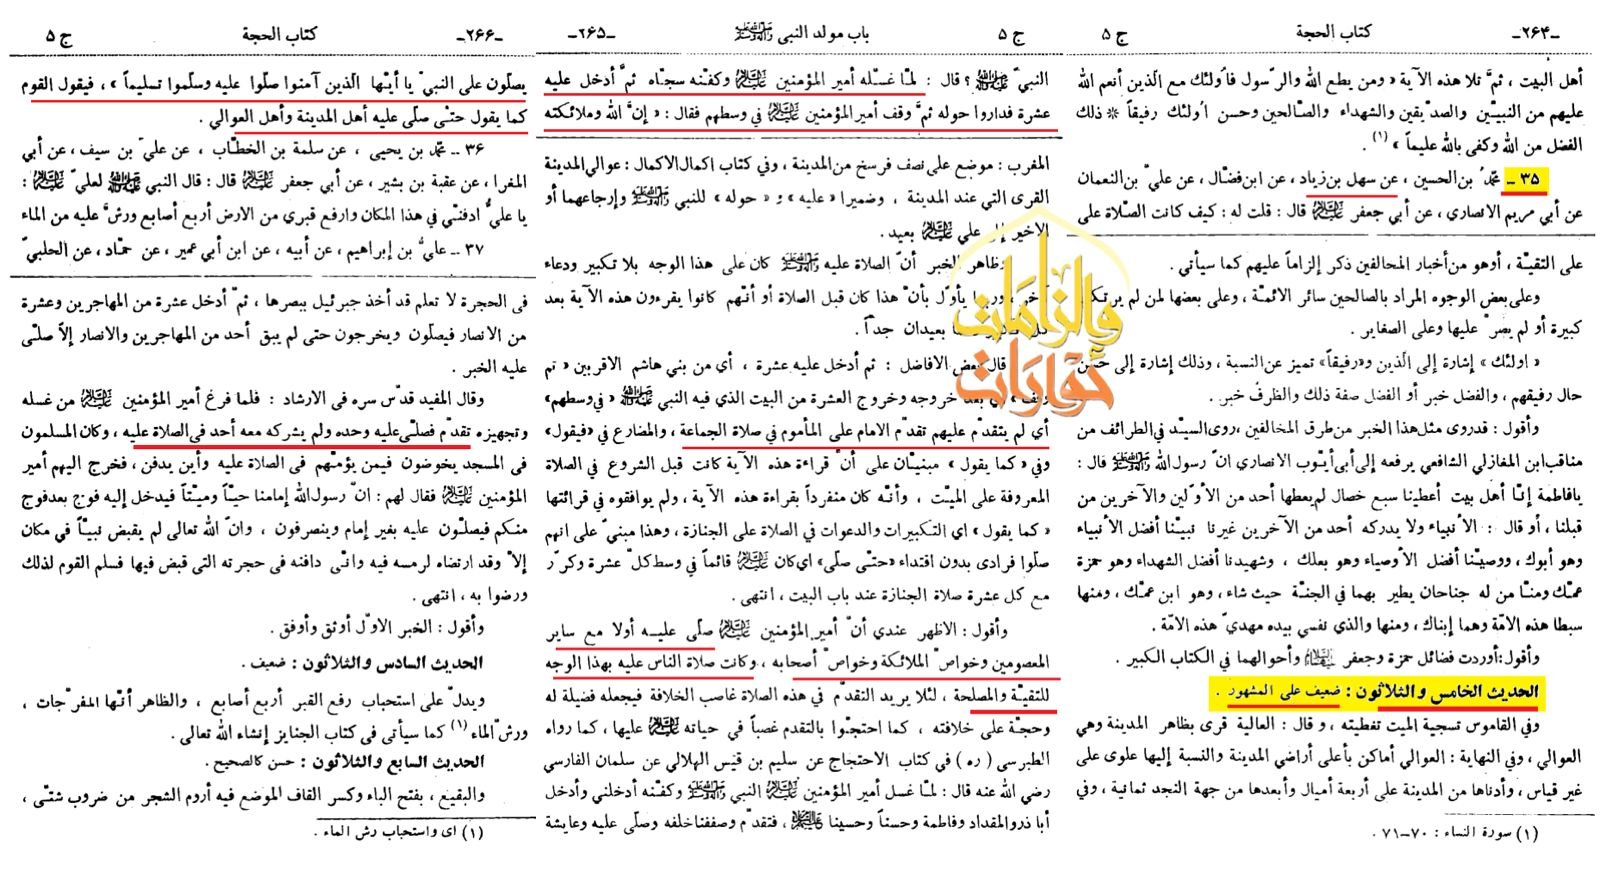 -٢۶۴- كتاب الحجة ج ۵
أهل البيت ، ثمَّ تلا هذه الآية « ومن يطع الله والرّسول فأولئك مع الّذين أنعم الله
عليهم من النبيّين والصدّيقين والشهداء والصّالحين وحسن أولئك رفيقاً * ذلك
الفضل من الله وكفى بالله عليماً » (١) .
٣۵ ـ محمّدُ بن الحسين ، عن سهل بن زياد ، عن ابن فضّال ، عن عليّ بن النعمان
عن أبي مريم الانصاري ، عن أبي جعفر عليه السلام قال : قلت له : كيف كانت الصّلاة على
على التقيّة ، أوهو من أخبار المخالفين ذكر إلزاماً عليهم كما سيأتي .
وعلى بعض الوجوه المراد بالصالحين سائر الائمّة ، وعلى بعضها لمن لم يرتكب
كبيرة أو لم يصرّ عليها وعلى الصغاير .
« اولئك » إشارة إلى الّذين و«رفيقاً» تميز عن النسبة ، وذلك إشارة إلى حسن
حال رفيقهم ، والفضل خبر أو الفضل صفة ذلك والظرف خبر .
وأقول : قدروى مثل هذا الخبر من طرق المخالفين ، روى السيّد في الطرائف من
مناقب ابن المغازلي الشافعي يرفعه إلى أبي أيّوب الانصاري انّ رسول الله صلى الله عليه وآله وسلم قال :
يافاطمة إنّا أهل بيت أعطينا سبع خصال لم يعطها أحد من الأوّلين والآخرين من
قبلنا ، أو قال : الأنبياء ولا يدركه أحد من الآخرين غيرنا نبيّنا أفضل الأنبياء
وهو أبوك ، ووصيّنا أفضل الأوصياء وهو بعلك ، وشهيدنا أفضل الشهداء وهو حمزة
عمّك ومنّا من له جناحان يطير بهما في الجنّة حيث شاء ، وهو ابن عمّك ، ومنها
سبطا هذه الامّة وهما إبناك ، ومنها والذي نفسي بيده مهديّ هذه الامّة .
وأقول : أوردت فضائل حمزة وجعفر عليهما السلام وأحوالهما في الكتاب الكبير .
الحديث الخامس والثلاثون : ضعيف على المشهور .
وفي القاموس تسجية الميت تغطيته ، و قال : العالية قرى بظاهر المدينة وهي
العوالي ، وفي النهاية : العوالي أماكن بأعلى أراضي المدينة والنسبة إليها علوى على
غير قياس ، وأدناها من المدينة على أربعة أميال وأبعدها من جهة النجد ثمانية ، وفي
(١) سورة النساء : ٧٠-٧١ .
ج ۵ باب مولد النبي صلى الله عليه وآله وسلم -٢۶۵-
النبيّ صلى الله عليه وآله وسلم ؟ قال : لمّا غسّله أمير المؤمنين عليه السلام وكفّنه سجّاه ثمَّ أدخل عليه
عشرة فداروا حوله ثمَّ وقف أمير المؤمنين عليه السلام في وسطهم فقال : « إنَّ الله وملائكته
المغرب : موضع على نصف فرسخ من المدينة ، وفي كتاب إكمال الاكمال : عوالي المدينة
القرى التي عند المدينة ، وضميرا « عليه » و « حوله » للنبي صلى الله عليه وآله وسلم وإرجاعهما أو
الاخير إلى علي عليه السلام بعيد .
وظاهر الخبر أنّ الصلاة عليه صلى الله عليه وآله وسلم كان على هذا الوجه بلا تكبير ودعاء
آخر ، وربما يأوّل بأنّ هذا كان قبل الصلاة أو أنّهم كانوا يقرءون هذه الآية بعد
بعيدان جدّاً .
قال بعض الافاضل : ثم أدخل عليه عشرة ، أي من بني هاشم الاقربين « ثم
وقف » أي بعد خروجه وخروج العشرة من البيت الذي فيه النبي صلى الله عليه وآله وسلم « في وسطهم»
أي لم يتقدّم عليهم تقدّم الامام على المأموم في صلاة الجماعة ، والمضارع في «فيقول»
وفي « كما يقول » مبنيّان على أنّ قراءة هذه الآية كانت قبل الشروع في الصلاة
المعروفة على الميّت ، وأنّه كان منفرداً بقراءة هذه الآية ، ولم يوافقوه في قرائتها
« كما يقول » اي التكبيرات والدعوات في الصلاة على الجنازة ، وهذا مبنيّ على انهم
صلّوا فرادى بدون اقتداء «حتّى صلّى» اي كان عليه السلام قائماً في وسط كلّ عشرة وكرّر
مع كل عشرة صلاة الجنازة عند باب البيت ، انتهى .
وأقول : الاظهر عندي أنّ أمير المؤمنين عليه السلام صلّى عليه أولا مع ساير
المعصومين وخواصّ الملائكة وخواصّ أصحابه ، وكانت صلاة الناس عليه بهذا الوجه
للتقيّة والمصلحة ، لئلا يريد التقدّم في هذه الصلاة غاصب الخلافة فيجعله فضيلة له
وحجّة على خلافته ، كما احتجّوا بالتقدم غصباً في حياته عليه السلام عليها ، كما رواه
الطبرسي ( ره ) في كتاب الاحتجاج عن سليم بن قيس الهلالي عن سلمان الفارسي
رضي الله عنه قال : لمّا غسل أمير المؤمنين عليه السلام النبي صلى الله عليه وآله وسلم وكفّنه أدخلني وأدخل
أبا ذر والمقداد وفاطمة وحسناً وحسينا عليهم السلام ، فتقدّم وصففنا خلفه وصلّى عليه وعايشة
-٢۶۶- كتاب الحجة ج ۵
يصلّون على النبيّ يا أيّها الّذين آمنوا صلّوا عليه وسلّموا تسليماً » ، فيقول القوم
كما يقول حتّى صلّى عليه أهل المدينة وأهل العوالي .
٣۶ ـ محمّد بن يحيى ، عن سلمة بن الخطّاب ، عن عليّ بن سيف ، عن أبي
المغرا ، عن عقبة بن بشير ، عن أبي جعفر عليه السلام قال : قال النبي صلى الله عليه وآله وسلم لعليّ عليه السلام :
يا عليُّ ادفنّي في هذا المكان وارفع قبري من الارض أربع أصابع ورشَّ عليه من الماء
٣٧ ـ عليُّ بن إبراهيم ، عن أبيه ، عن ابن أبي عمير ، عن حمّاد ، عن الحلبيّ
في الحجرة لا تعلم قد أخذ جبرئيل ببصرها ، ثمّ أدخل عشرة من المهاجرين وعشرة
من الانصار فيصلّون ويخرجون حتى لم يبق أحد من المهاجرين والانصار إلاّ صلّى
عليه الخبر .
وقال المفيد قدّس سره في الارشاد : فلما فرغ أمير المؤمنين عليه السلام من غسله
وتجهيزه تقدّم فصلّى عليه وحده ولم يشركه معه أحد في الصلاة عليه ، وكان المسلمون
في المسجد يخوضون فيمن يؤمّهم في الصلاة عليه وأين يدفن ، فخرج اليهم أمير
المؤمنين عليه السلام فقال لهم : انّ رسول الله إمامنا حيّاً وميّتاً فيدخل إليه فوج بعد فوج
منكم فيصلّون عليه بغير إمام وينصرفون ، وانّ الله تعالى لم يقبض نبيّاً في مكان
إلاّ وقد ارتضاه لرمسه فيه وانّي دافنه في حجرته التي قبض فيها فسلم القوم لذلك
ورضوا به ، انتهى .
وأقول : الخبر الاوّل أوثق وأوفق .
الحديث السادس والثلاثون : ضعيف .
ويدلّ على استحباب رفع القبر أربع أصابع ، والظاهر أنّها المفرّجات ،
ورشّ الماء (١) كما سيأتى في كتاب الجنايز إنشاء الله تعالى .
الحديث السابع والثلاثون : حسن كالصحيح .
والبقيع ، بفتح الباء وكسر القاف الموضع فيه أروم الشجر من ضروب شتّى ،
(١) اى واستحباب رش الماء .
حوارات
والزامات